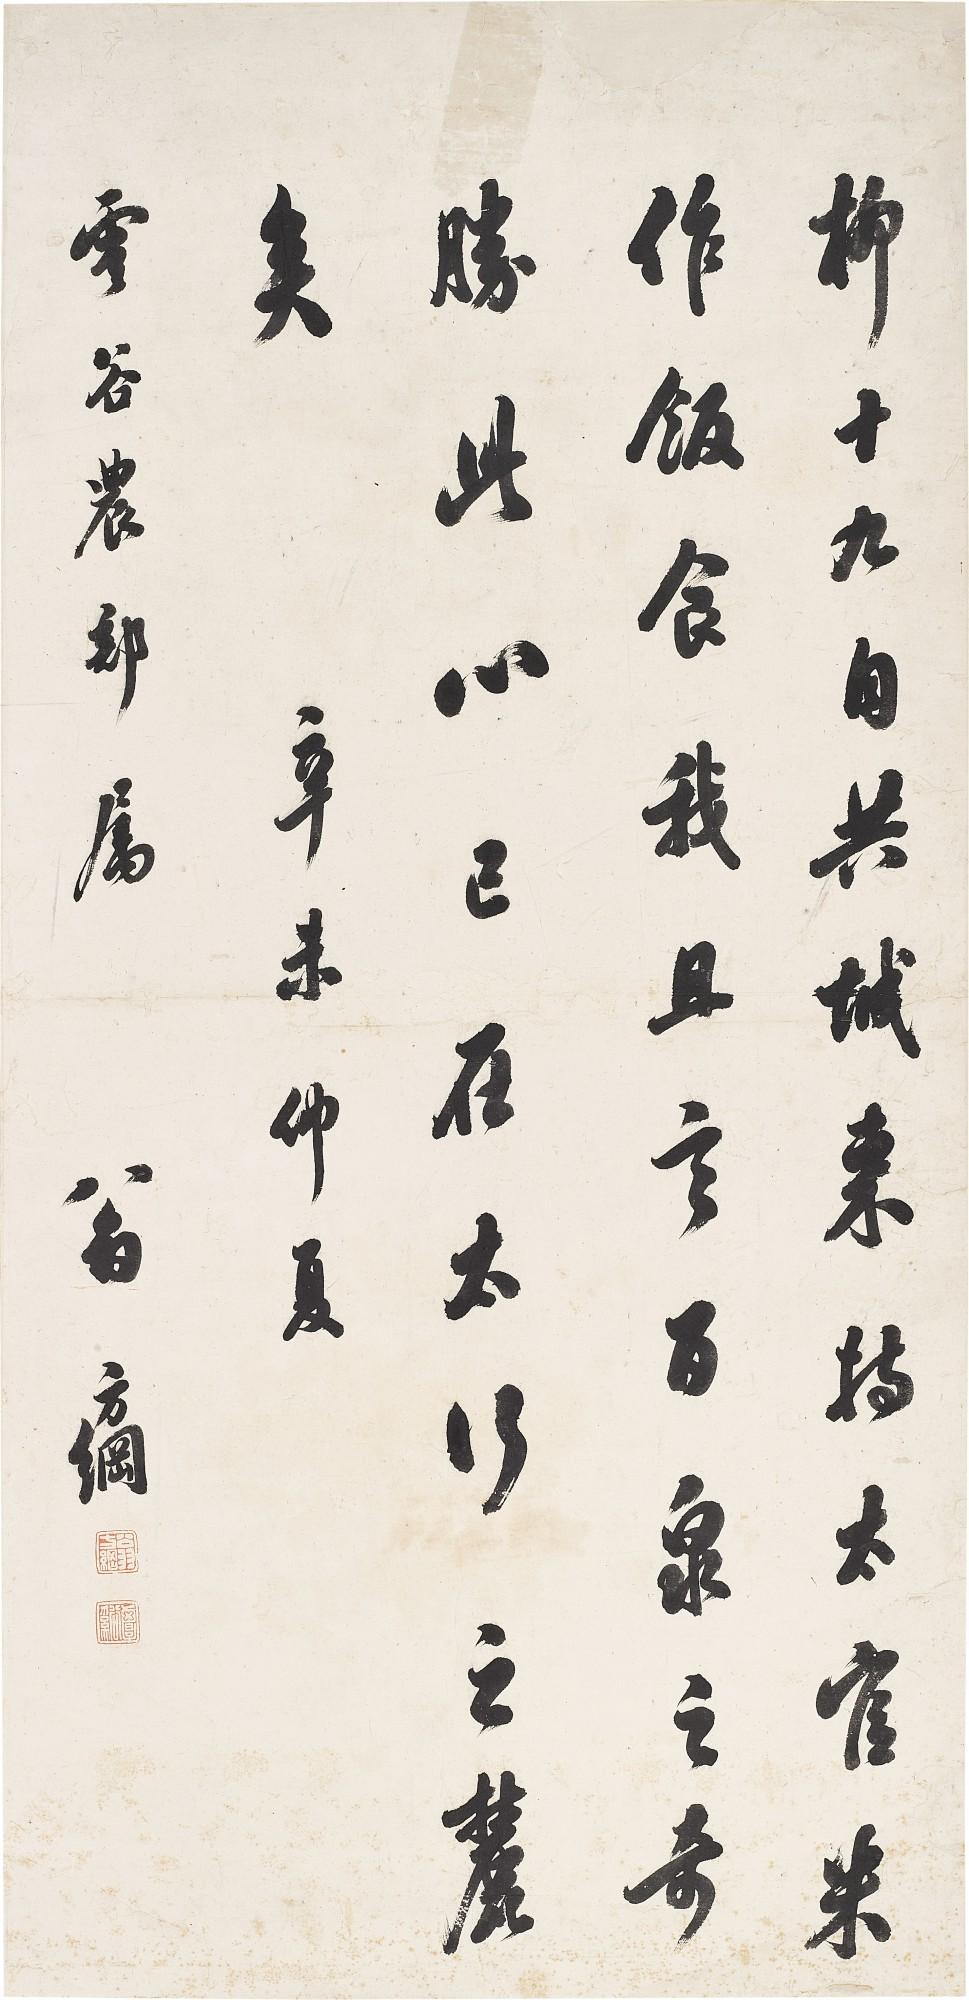 柳十九自共城來持太官米
作飯食我且言百泉之奇
勝此心已在太行之麓
矣
辛未仲夏
雲谷農部属
翁方綱
翁方綱
覃谿